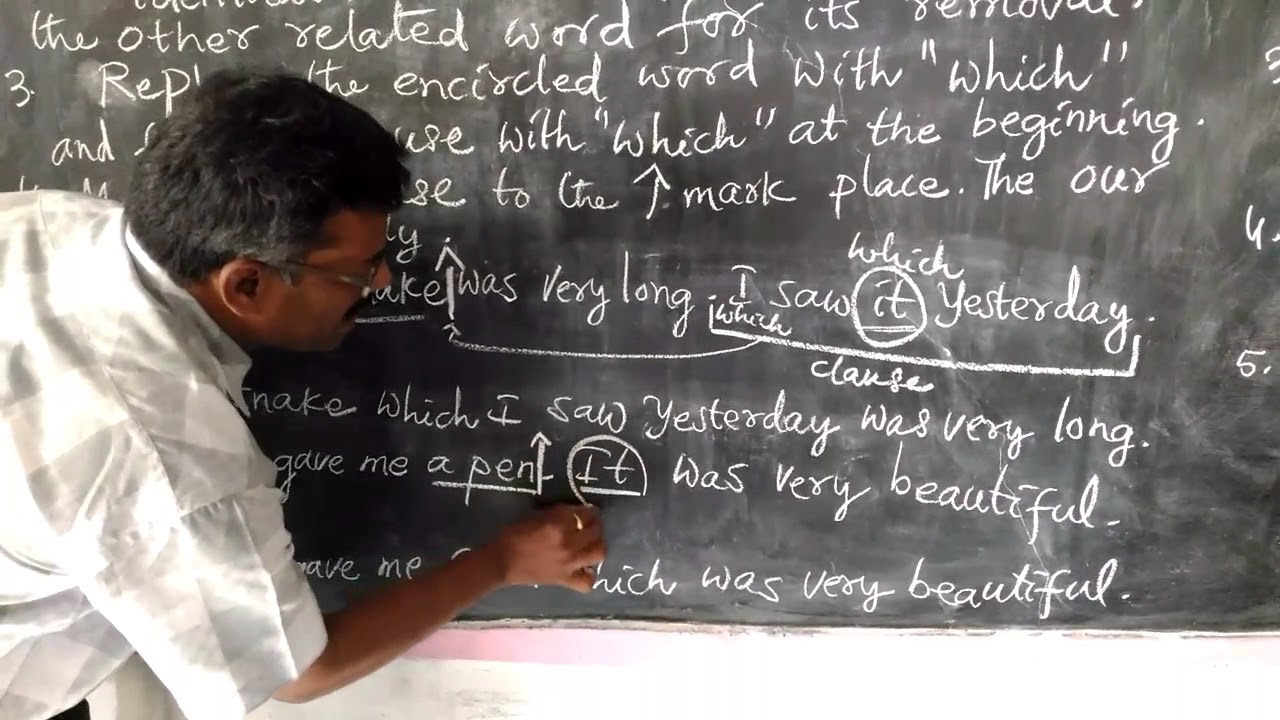 the other related word for its removal.
3. the encircled word with "which"
and with "which" at the beginning.
to the ↑ mark place. The our
which
was very long. I saw it Yesterday.
which
clause
which I saw Yesterday was very long.
gave me a pen. It was very beautiful.
me which was very beautiful.
4.
5.